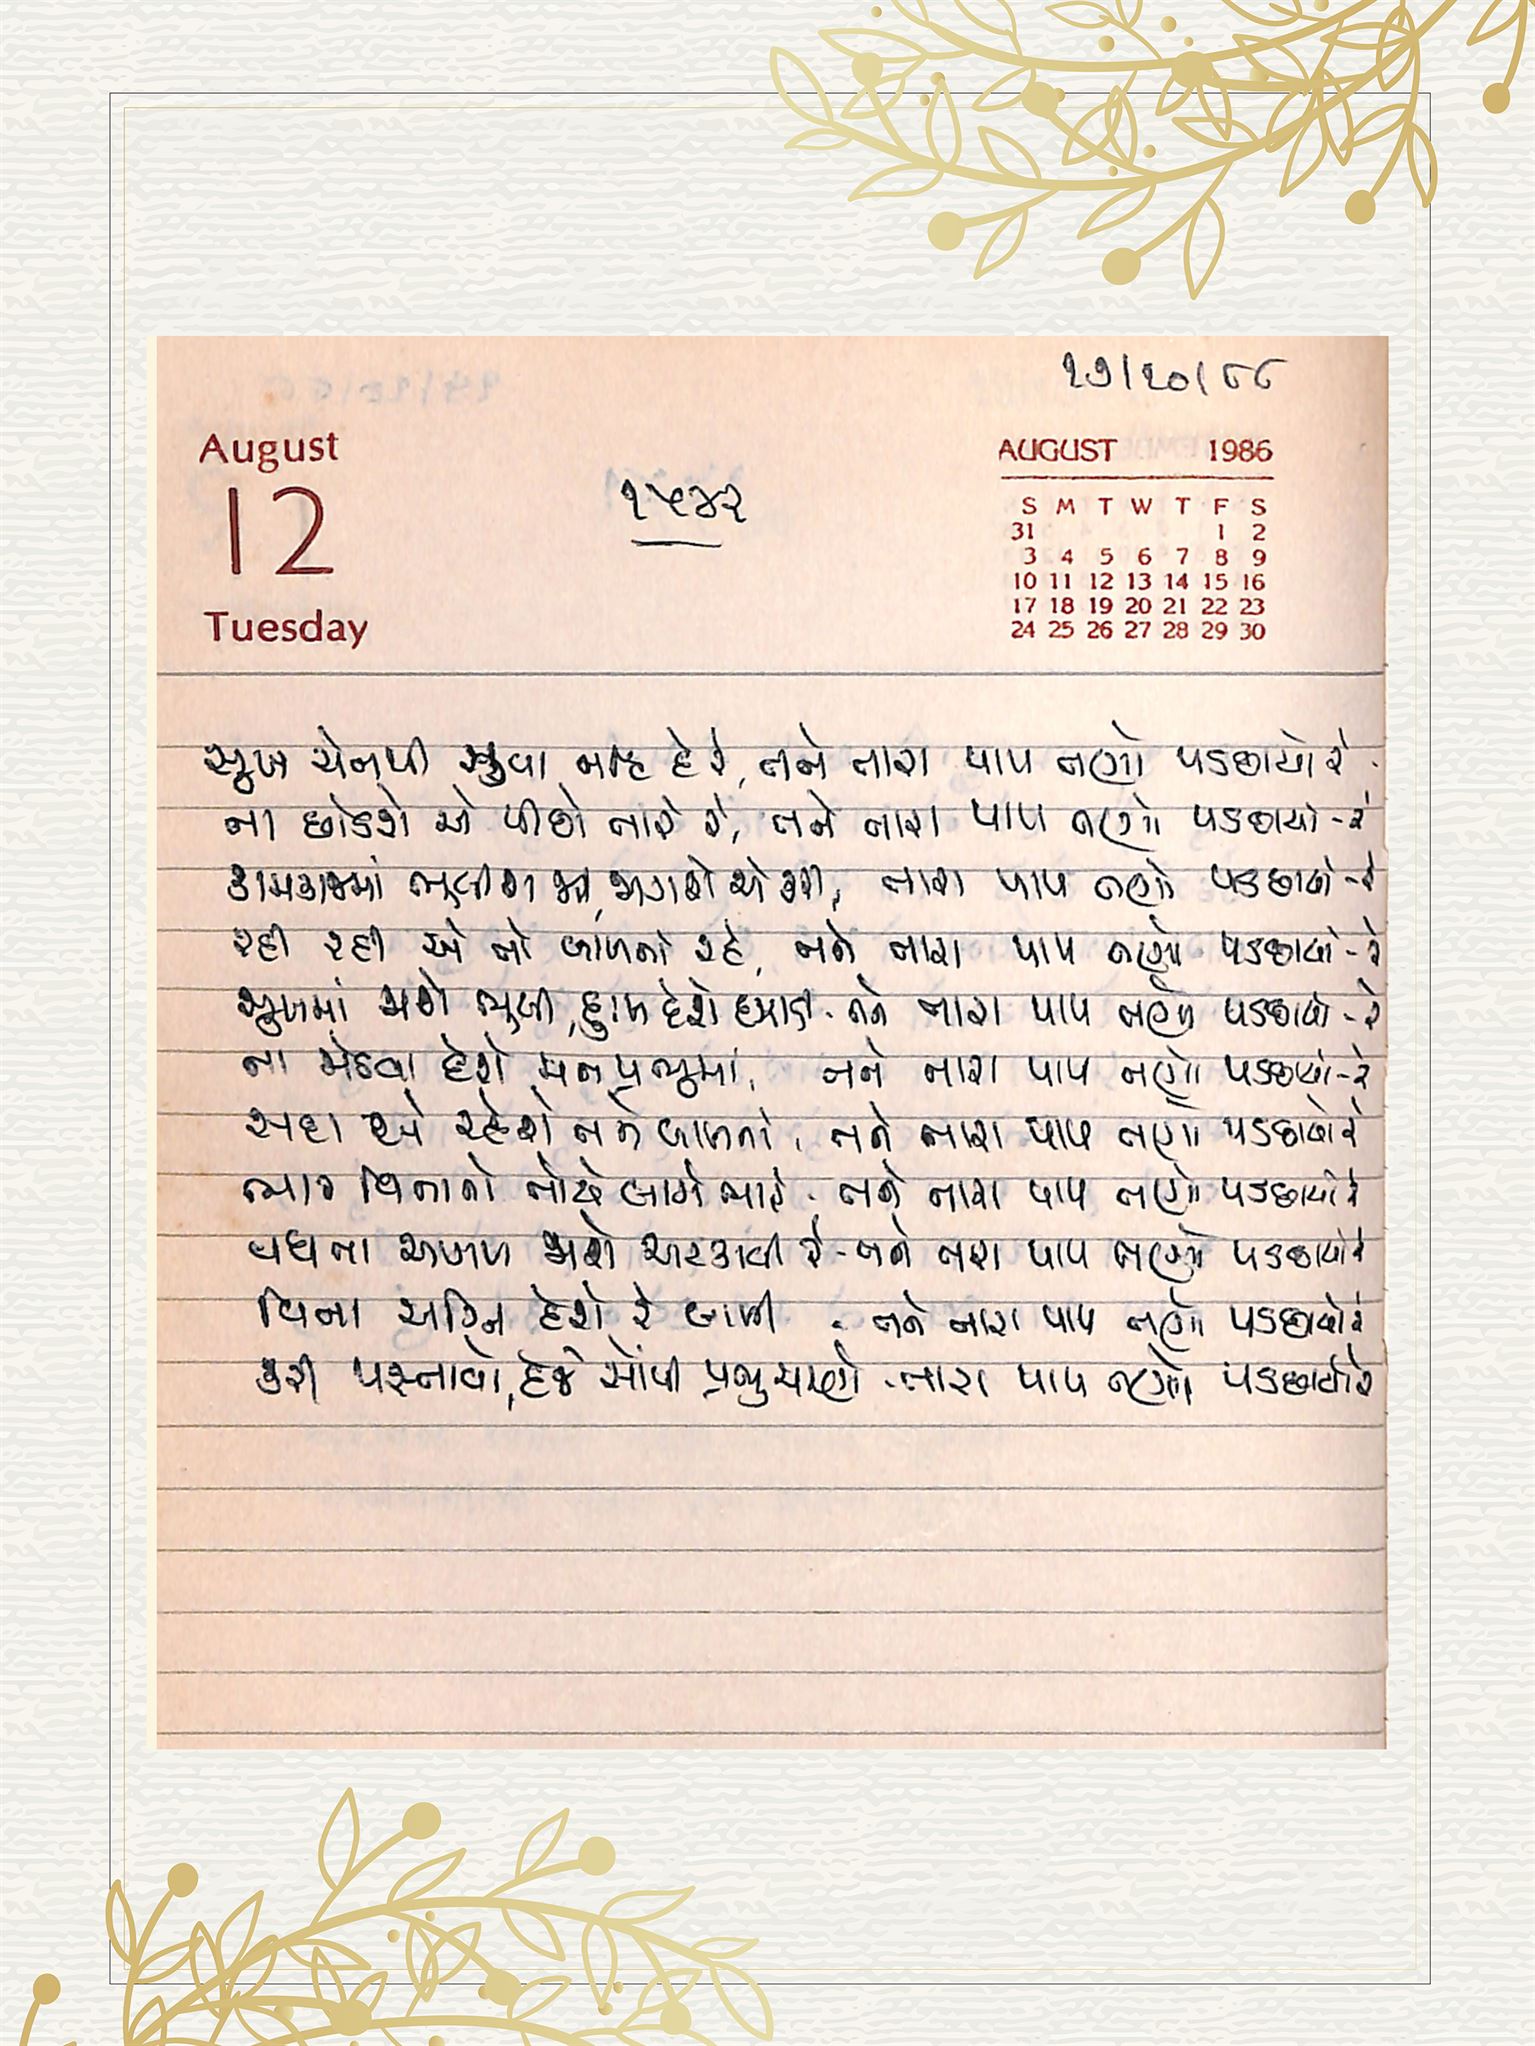 ૧૭/૧૦/૮૮
August
12
Tuesday
૧૫૪૨
AUGUST 1986
S M T W T F S
31 1 2
3 4 5 6 7 8 9
10 11 12 13 14 15 16
17 18 19 20 21 22 23
24 25 26 27 28 29 30
સુખ ચેનથી સુવા નહિ દે રે, તને તારા પાપ તણો પડછાયો રે
ના છોડશે એ પીછો તારો રે, તને તારા પાપ તણો પડછાયો - રે
કામકાજમાં ભુલીશ જ્યાં, જાગશે એ ફરી, તારા પાપ તણો પડછાયો - રે
રહી રહી એ તો બાળતો રહે, તને તારા પાપ તણો પડછાયો - રે
સુખમાં જાશે ભુલી, દુઃખ દેશે જગાડી. તને તારા પાપ તણો પડછાયો - રે
ના જોડવા દેશે મન પ્રભુમાં, તને તારા પાપ તણો પડછાયો - રે
સદા એ રહેશે તને બાળતો, તને તારા પાપ તણો પડછાયો રે
ભાર વિનાનો તોયે લાગે ભારે. તને તારા પાપ તણો પડછાયો રે
વધતા આગળ જાશે અટકાવી રે - તને તારા પાપ તણો પડછાયો રે
વિના અગ્નિ દેશે રે બાળી. તને તારા પાપ તણો પડછાયો રે
કરી પસ્તાવો, દેજે સોંપી પ્રભુ ચરણે. તારા પાપ તણો પડછાયો રે